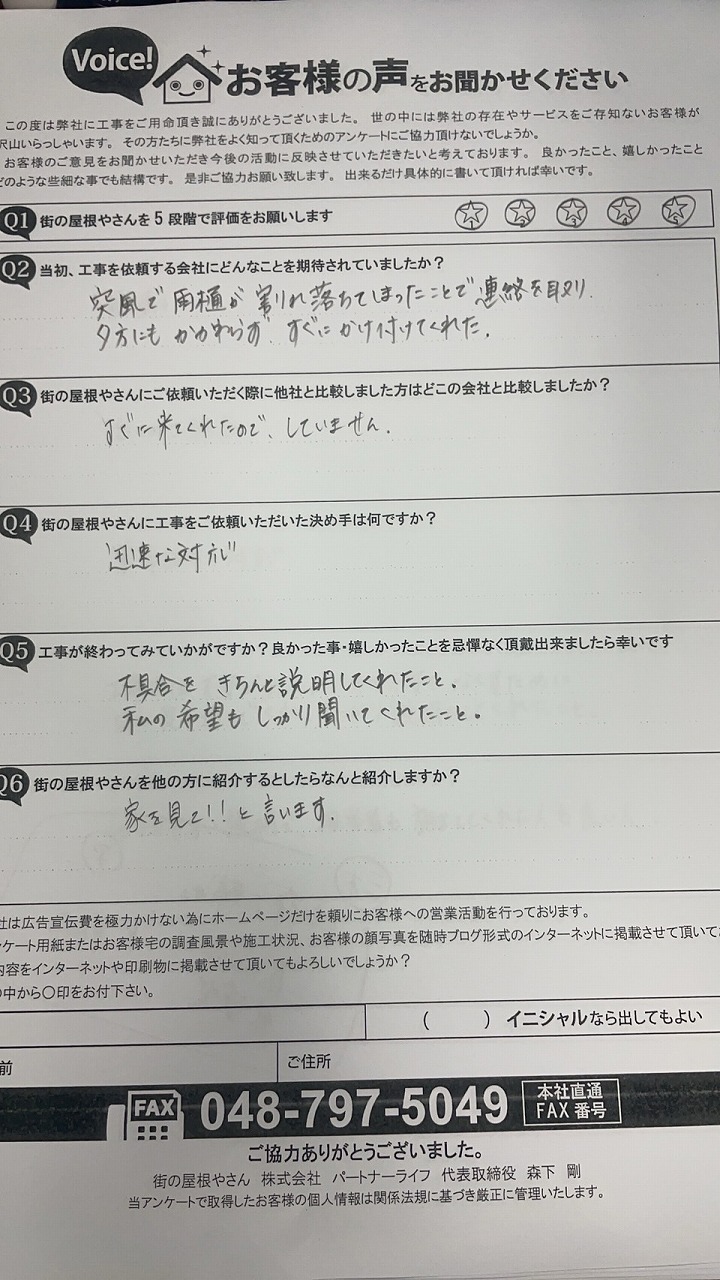 Voice! お客様の声をお聞かせください
この度は弊社に工事をご用命頂き誠にありがとうございました。 世の中には弊社の存在やサービスをご存知ないお客様が
沢山いらっしゃいます。 その方たちに弊社をよく知って頂くためのアンケートにご協力頂けないでしょうか。
お客様のご意見をお聞かせいただき今後の活動に反映させていただきたいと考えております。 良かったこと、嬉しかったこと
どのような些細な事でも結構です。 是非ご協力お願い致します。 出来るだけ具体的に書いて頂ければ幸いです。
Q1 街の屋根やさんを5段階で評価をお願いします 1 2 3 4 5
Q2 当初、工事を依頼する会社にどんなことを期待されていましたか？
突風で雨樋が割れ落ちてしまったことで連絡を取り
夕方にもかかわらず、すぐにかけ付けてくれた。
Q3 街の屋根やさんにご依頼いただく際に他社と比較しました方はどこの会社と比較しましたか？
すぐに来てくれたので、していません。
Q4 街の屋根やさんに工事をご依頼いただいた決め手は何ですか？
迅速な対応
Q5 工事が終わってみていかがですか？良かった事・嬉しかったことを忌憚なく頂戴出来ましたら幸いです
不具合をきちんと説明してくれたこと。
私の希望もしっかり聞いてくれたこと。
Q6 街の屋根やさんを他の方に紹介するとしたらなんと紹介しますか？
家を見て!!と言います。
社は広告宣伝費を極力かけない為にホームページだけを頼りにお客様への営業活動を行っております。
ンケート用紙またはお客様宅の調査風景や施工状況、お客様の顔写真を随時ブログ形式のインターネットに掲載させて頂いて
内容をインターネットや印刷物に掲載させて頂いてもよろしいでしょうか？
の中から〇印をお付下さい。
（　　　）イニシャルなら出してもよい
前 ご住所
FAX 048-797-5049 本社直通 FAX番号
ご協力ありがとうございました。
街の屋根やさん 株式会社 パートナーライフ 代表取締役 森下 剛
当アンケートで取得したお客様の個人情報は関係法規に基づき厳正に管理いたします。